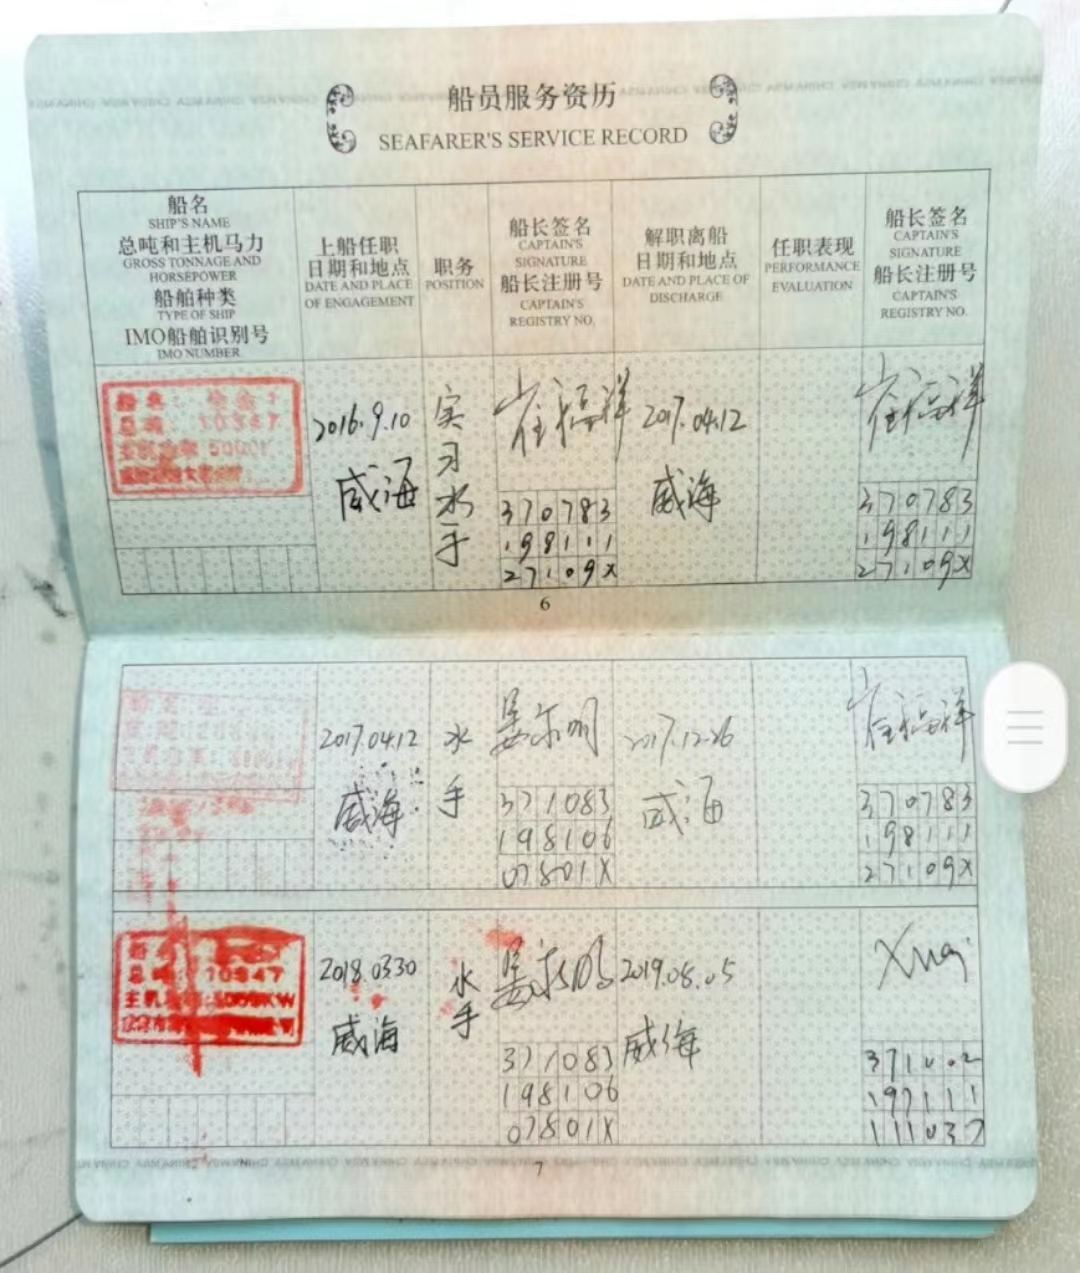 船员服务资历
SEAFARER'S SERVICE RECORD
船名
SHIP'S NAME
总吨和主机马力
GROSS TONNAGE AND
HORSEPOWER
船舶种类
TYPE OF SHIP
IMO船舶识别号
IMO NUMBER
上船任职
日期和地点
DATE AND PLACE
OF ENGAGEMENT
职务
POSITION
船长签名
CAPTAIN'S
SIGNATURE
船长注册号
CAPTAIN'S
REGISTRY NO.
解职离船
日期和地点
DATE AND PLACE OF
DISCHARGE
任职表现
PERFORMANCE
EVALUATION
船长签名
CAPTAIN'S
SIGNATURE
船长注册号
CAPTAIN'S
REGISTRY NO.
船名:
总吨: 10347
主机功率
2016.9.10
威海
实习水手
370783
198111
27109X
2017.04.12
威海
370783
198111
27109X
6
2017.04.12
威海
水手
371083
198106
07801X
2017.12.26
威海
370783
198111
27109X
总吨: 10347
主机功率: KW
2018.03.30
威海
水手
371083
198106
07801X
2019.08.05
威海
371002
197111
7